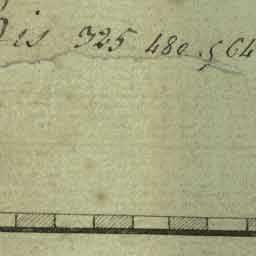 is 325 480 564